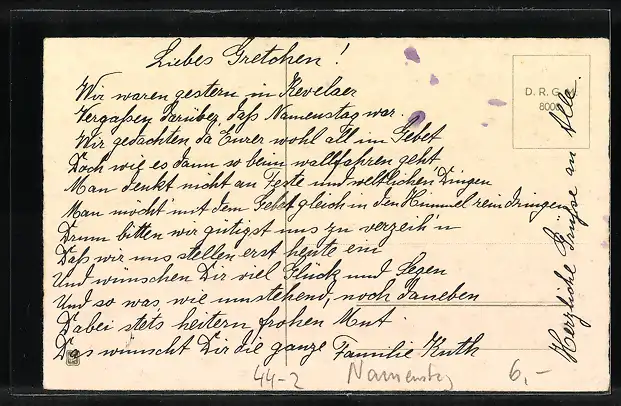 Liebes Gretchen!
Wir waren gestern in Kevelaer
Vergaßen darüber, daß Namenstag war.
Wir gedachten da Eurer wohl all im Gebet
Doch wie es dann so beim wallfahren geht
Man denkt nicht an Feste und weltlichen Dingen
Man möcht' mit dem Gebet gleich in den Himmel rein dringen
Drum bitten wir gütigst uns zu verzeih'n
Daß wir uns stellen erst heute ein
Und wünschen Dir viel Glück und Segen
Und so was wie umstehend, noch daneben
Dabei stets heitern, frohen Mut
Das wünscht Dir die ganze Familie Kuth
Herzliche Grüße an Alle.
D. R. G.
800
44-2 Namenstag 6,-